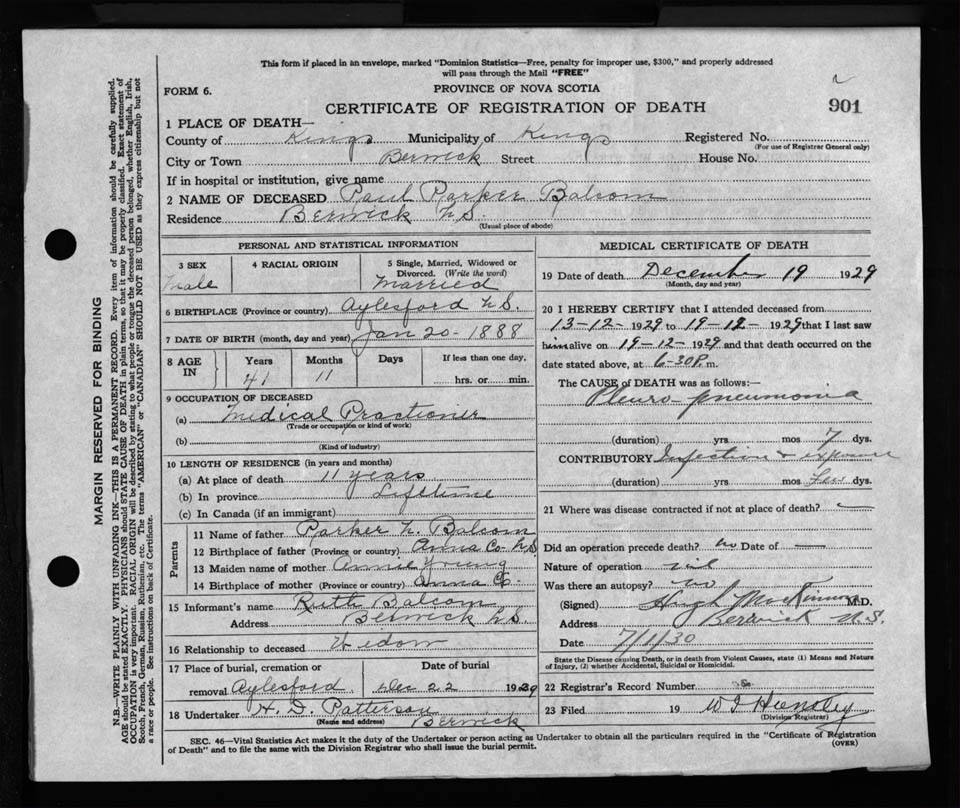 This form if placed in an envelope, marked "Dominion Statistics—Free, penalty for improper use, $300," and properly addressed
will pass through the Mail "FREE"
FORM 6.
PROVINCE OF NOVA SCOTIA
CERTIFICATE OF REGISTRATION OF DEATH
901
1 PLACE OF DEATH—
County of Kings Municipality of Kings Registered No.
(For use of Registrar General only)
City or Town Berwick Street House No.
If in hospital or institution, give name
2 NAME OF DECEASED Paul Parker Balcom
Residence Berwick N.S.
(Usual place of abode)
PERSONAL AND STATISTICAL INFORMATION
3 SEX
Male
4 RACIAL ORIGIN
5 Single, Married, Widowed or
Divorced. (Write the word)
Married
6 BIRTHPLACE (Province or country) Aylesford N.S.
7 DATE OF BIRTH (month, day and year) Jan 20 - 1888
8 AGE IN
Years Months Days If less than one day,
41 11 hrs. or min.
9 OCCUPATION OF DECEASED
(a) Medical Practioner
(Trade or occupation or kind of work)
(b)
(Kind of industry)
10 LENGTH OF RESIDENCE (in years and months)
(a) At place of death 11 years
(b) In province Lifetime
(c) In Canada (if an immigrant)
Parents
11 Name of father Parker N. Balcom
12 Birthplace of father (Province or country) Anna Co. N.S
13 Maiden name of mother Annie Young
14 Birthplace of mother (Province or Country) Anna Co.
15 Informant's name Ruth Balcom
Address Berwick N.S.
16 Relationship to deceased Widow
17 Place of burial, cremation or Date of burial
removal Aylesford. Dec 22 1929
18 Undertaker H. D. Patterson
(Name and address) Berwick
MEDICAL CERTIFICATE OF DEATH
19 Date of death December 19 1929
(Month, day and year)
20 I HEREBY CERTIFY that I attended deceased from
13-12-1929 to 19-12-1929 that I last saw
him alive on 19-12-1929 and that death occurred on the
date stated above, at 6-30P. m.
The CAUSE of DEATH was as follows:—
Pleuro-pneumonia
(duration) yrs mos 7 dys.
CONTRIBUTORY Infection & exposure
(duration) yrs mos Few dys.
21 Where was disease contracted if not at place of death? —
Did an operation precede death? no Date of —
Nature of operation nil
Was there an autopsy? no
(Signed) Hugh MacKinnon M.D.
Address Berwick N.S.
Date 7/1/30
State the Disease causing Death, or in death from Violent Causes, state (1) Means and Nature
of Injury, (2) whether Accidental, Suicidal or Homicidal.
22 Registrar's Record Number
23 Filed 19
(Division Registrar)
SEC. 46—Vital Statistics Act makes it the duty of the Undertaker or person acting as Undertaker to obtain all the particulars required in the "Certificate of Registration
of Death" and to file the same with the Division Registrar who shall issue the burial permit.
(OVER)
MARGIN RESERVED FOR BINDING
N.B.—WRITE PLAINLY WITH UNFADING INK—THIS IS A PERMANENT RECORD. Every item of information should be carefully supplied.
AGE should be stated EXACTLY. PHYSICIANS should STATE CAUSE OF DEATH in plain terms, so that it may be properly classified. Exact statement of
OCCUPATION is very important. RACIAL ORIGIN will be described by stating to what people or tongue the deceased person belonged, whether English, Irish,
Scotch, French, German, Russian, Ruthenian, etc. The terms "AMERICAN" or "CANADIAN" SHOULD NOT BE USED as they express citizenship but not
a race or people. See instructions on back of Certificate.